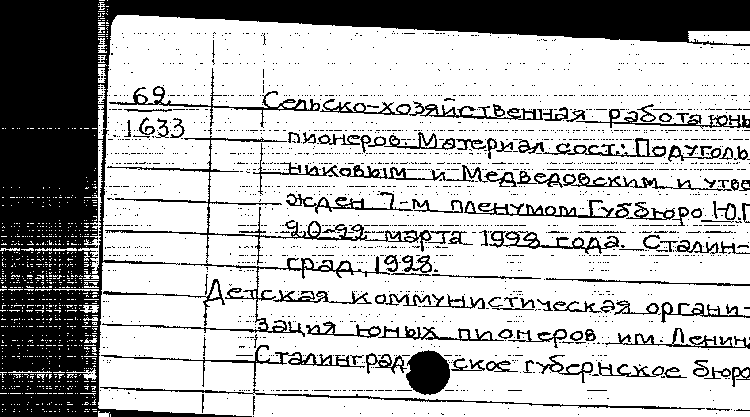 62 Сельско-хозяйственная работа юны
1633 пионеров. Материал сост.: Подуголь
никовым и Медведовским и утве
жден 7-м пленумом Губбюро Ю.П
20-22 марта 1928 года. Сталин-
град, 1928.
Детская коммунистическая органи-
зация юных пионеров им. Ленина
Сталинград ское губернское бюро